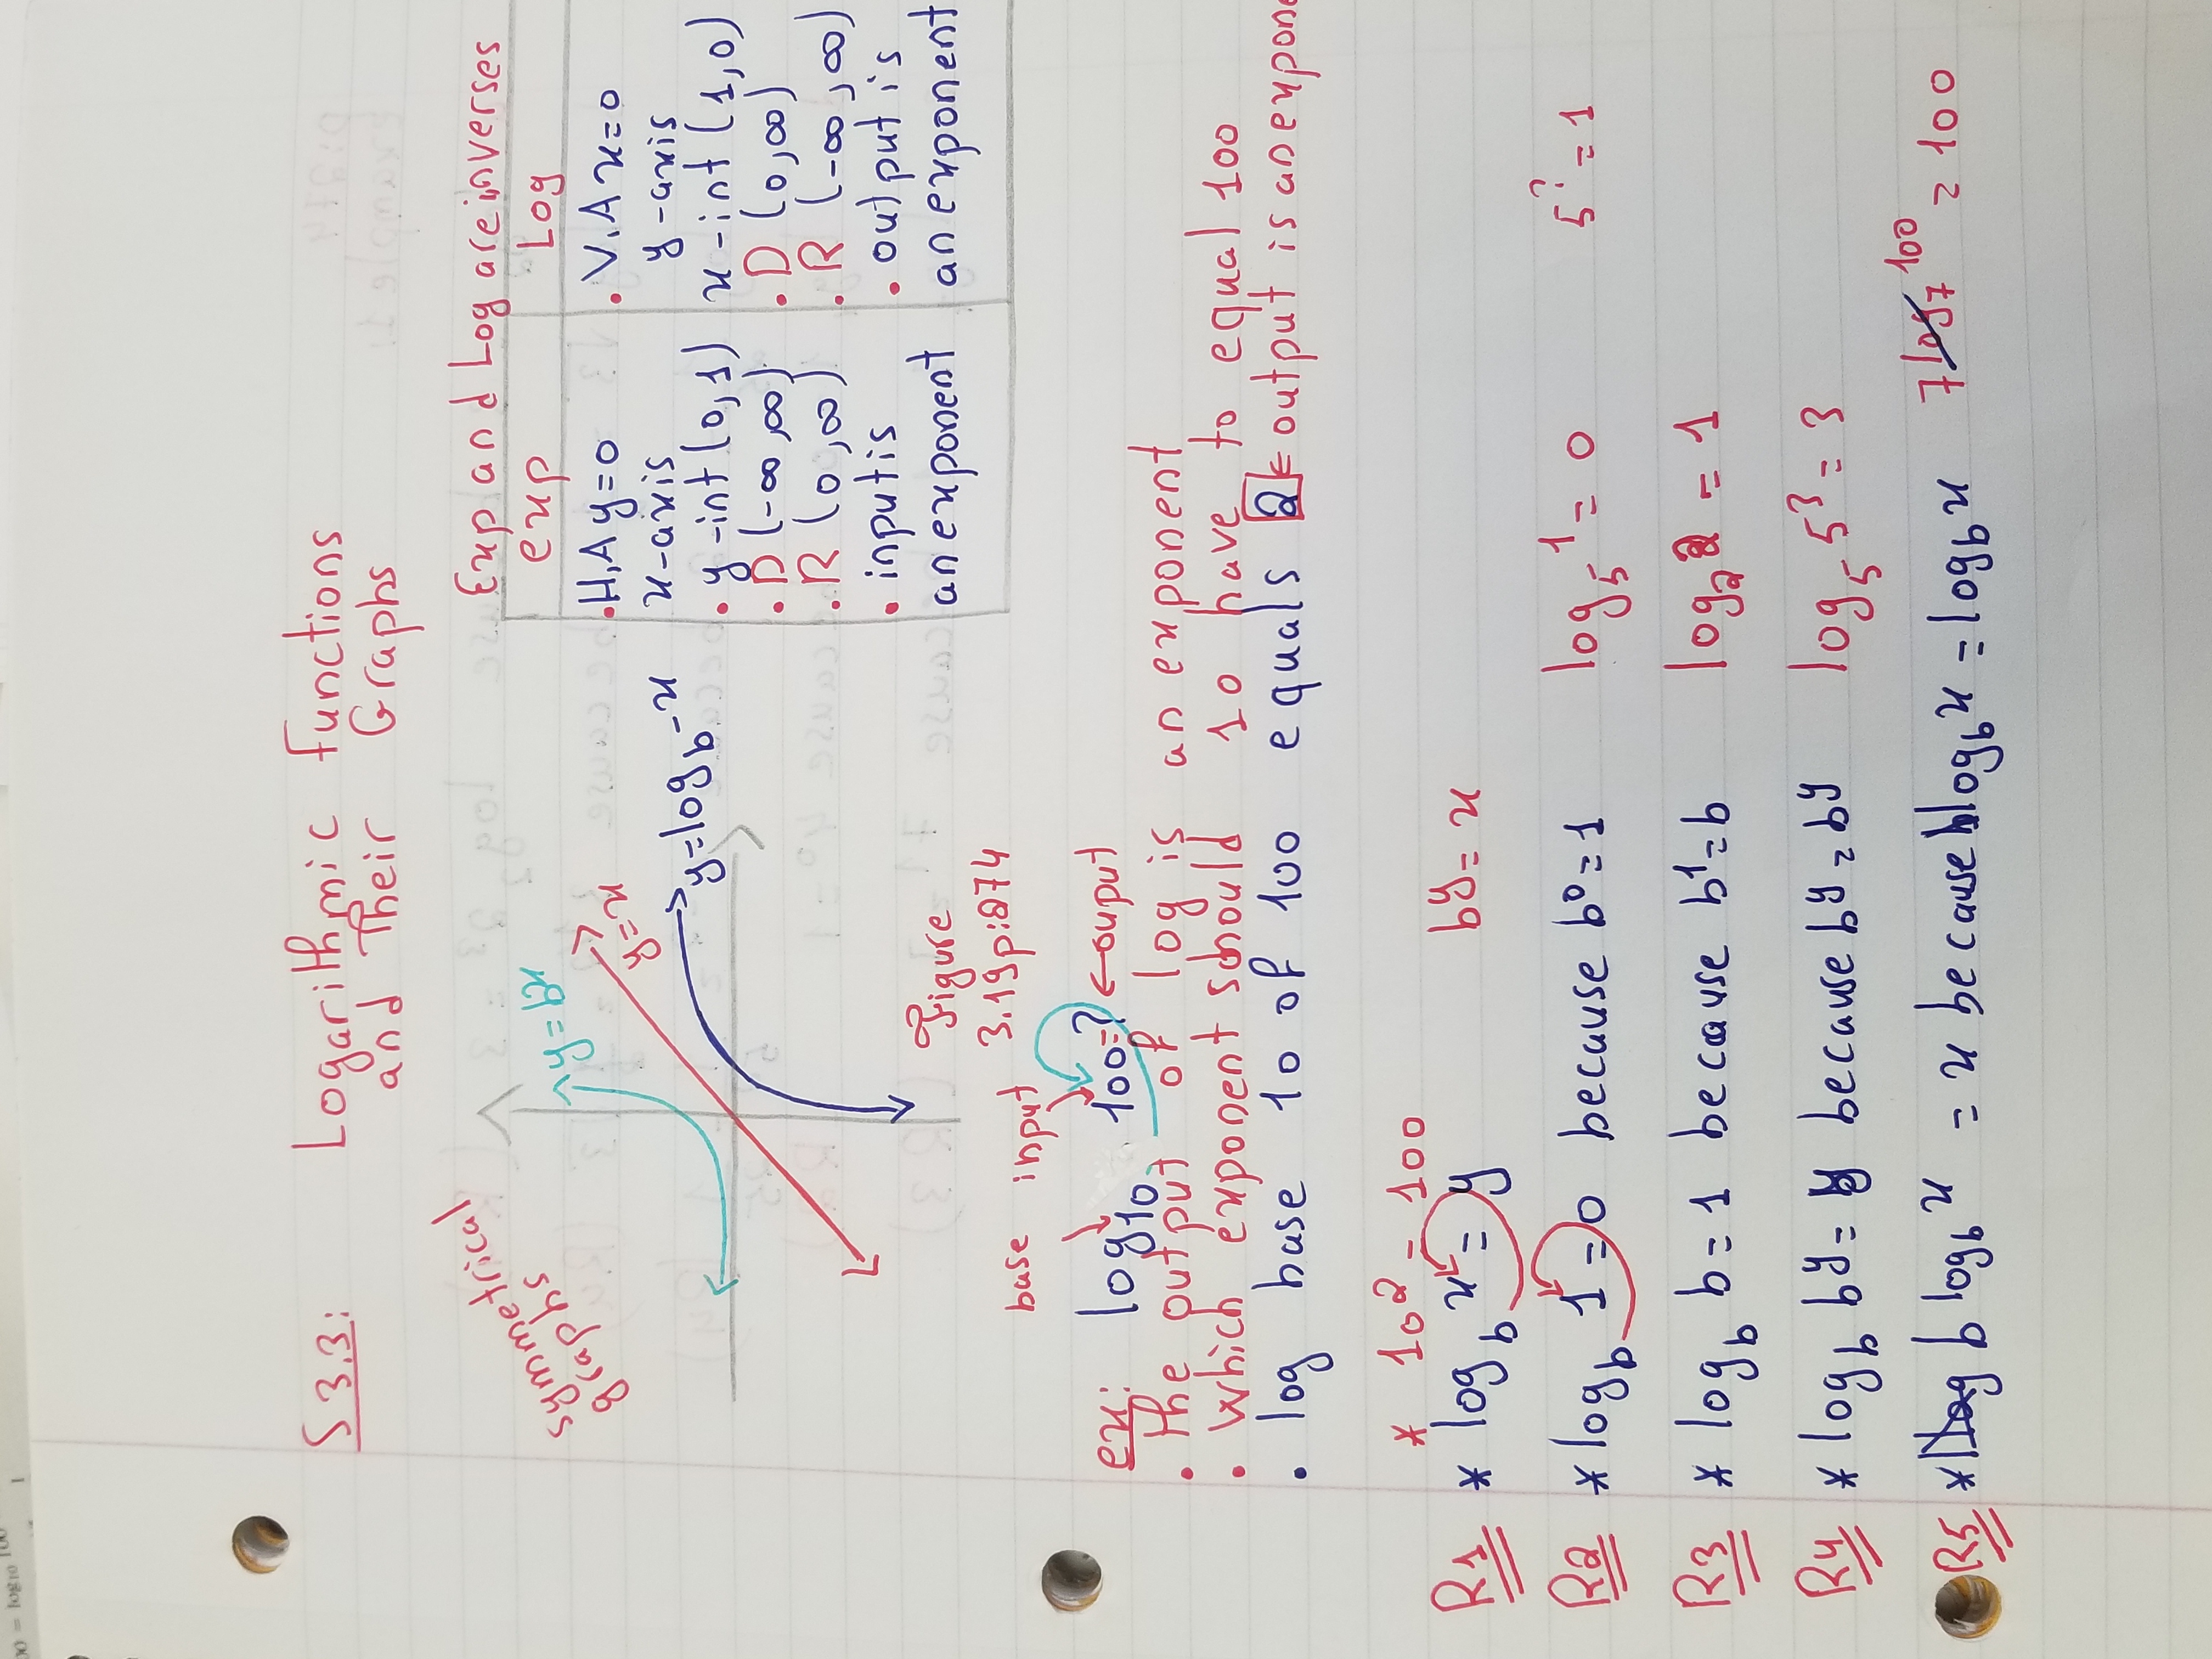 S 3.3: Logarithmic Functions
and Their Graphs
symmetrical
graphs
y=bˣ
y=x
y=log_b x
Figure
3.19 p:274
Exp and Log are inverses
exp Log
• H.A y=0
x-axis
• y-int (0,1)
• D (-∞,∞)
• R (0,∞)
• input is
an exponent
• V.A x=0
y-axis
x-int (1,0)
• D (0,∞)
• R (-∞,∞)
• output is
an exponent
base input
ex: log₁₀ 100=? ← ouput
• The output of log is an exponent
• Which exponent should 10 have to equal 100
• log base 10 of 100 equals 2 ← output is an expone
* 10² = 100
R1 * log_b x = y b^y = x
R2 * log_b 1 = 0 because b⁰ = 1 log₅ 1 = 0 5^? = 1
R3 * log_b b = 1 because b¹ = b log₂ 2 = 1
R4 * log_b b^y = y because b^y = b^y log₅ 5³ = 3
R5 * b^log_b x = x because log_b x = log_b x 7^log₇ 100 = 100